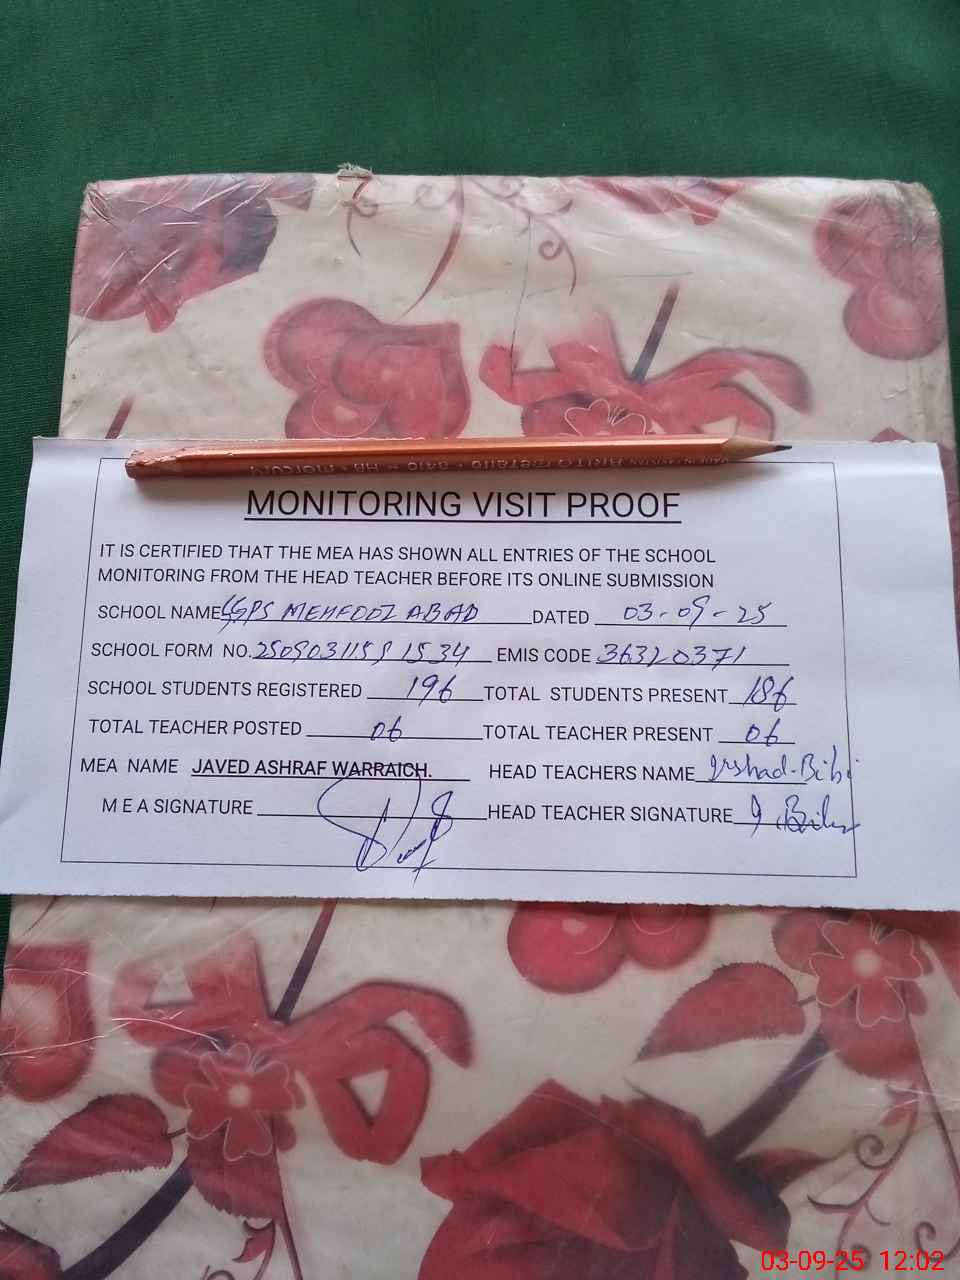 MONITORING VISIT PROOF
IT IS CERTIFIED THAT THE MEA HAS SHOWN ALL ENTRIES OF THE SCHOOL
MONITORING FROM THE HEAD TEACHER BEFORE ITS ONLINE SUBMISSION
SCHOOL NAME GGPS MEHFOOZ ABAD DATED 03-09-25
SCHOOL FORM NO. 2509031159 1534 EMIS CODE 36320371
SCHOOL STUDENTS REGISTERED 196 TOTAL STUDENTS PRESENT 186
TOTAL TEACHER POSTED 06 TOTAL TEACHER PRESENT 06
MEA NAME JAVED ASHRAF WARRAICH. HEAD TEACHERS NAME Irshad-Bibi
M E A SIGNATURE HEAD TEACHER SIGNATURE I.Bibi
03-09-25 12:02